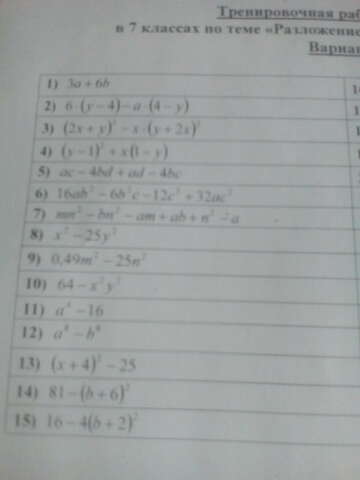 Тренировочная раб
в 7 классах по теме «Разложение
Вариан
1) 3a + 6b
2) 6·(y − 4) − a·(4 − y)
3) (2x + y)² − x·(y + 2x)²
4) (y − 1)² + x(1 − y)
5) ac − 4bd + ad − 4bc
6) 16ab² − 6b²c − 12c³ + 32ac²
7) mn² − bn² − am + ab + n² − a
8) x² − 25y²
9) 0,49m² − 25n²
10) 64 − x²y²
11) a⁴ − 16
12) a⁸ − b⁸
13) (x + 4)² − 25
14) 81 − (b + 6)²
15) 16 − 4(b + 2)²